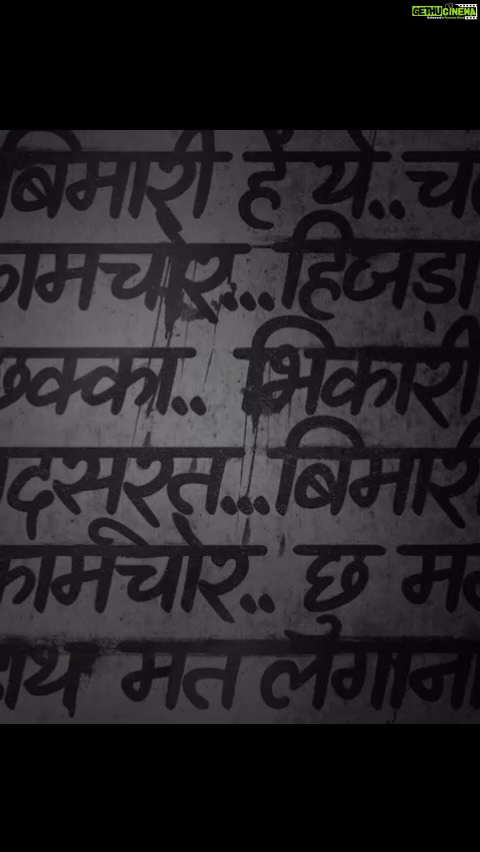 GETHU CINEMA
बिमारी हें ये..च
कामचोर...हिजड़ा
छक्का.. भिकारी
दसरत...बिमारी
कामचोर.. छु मत
हाथ मत लगाना